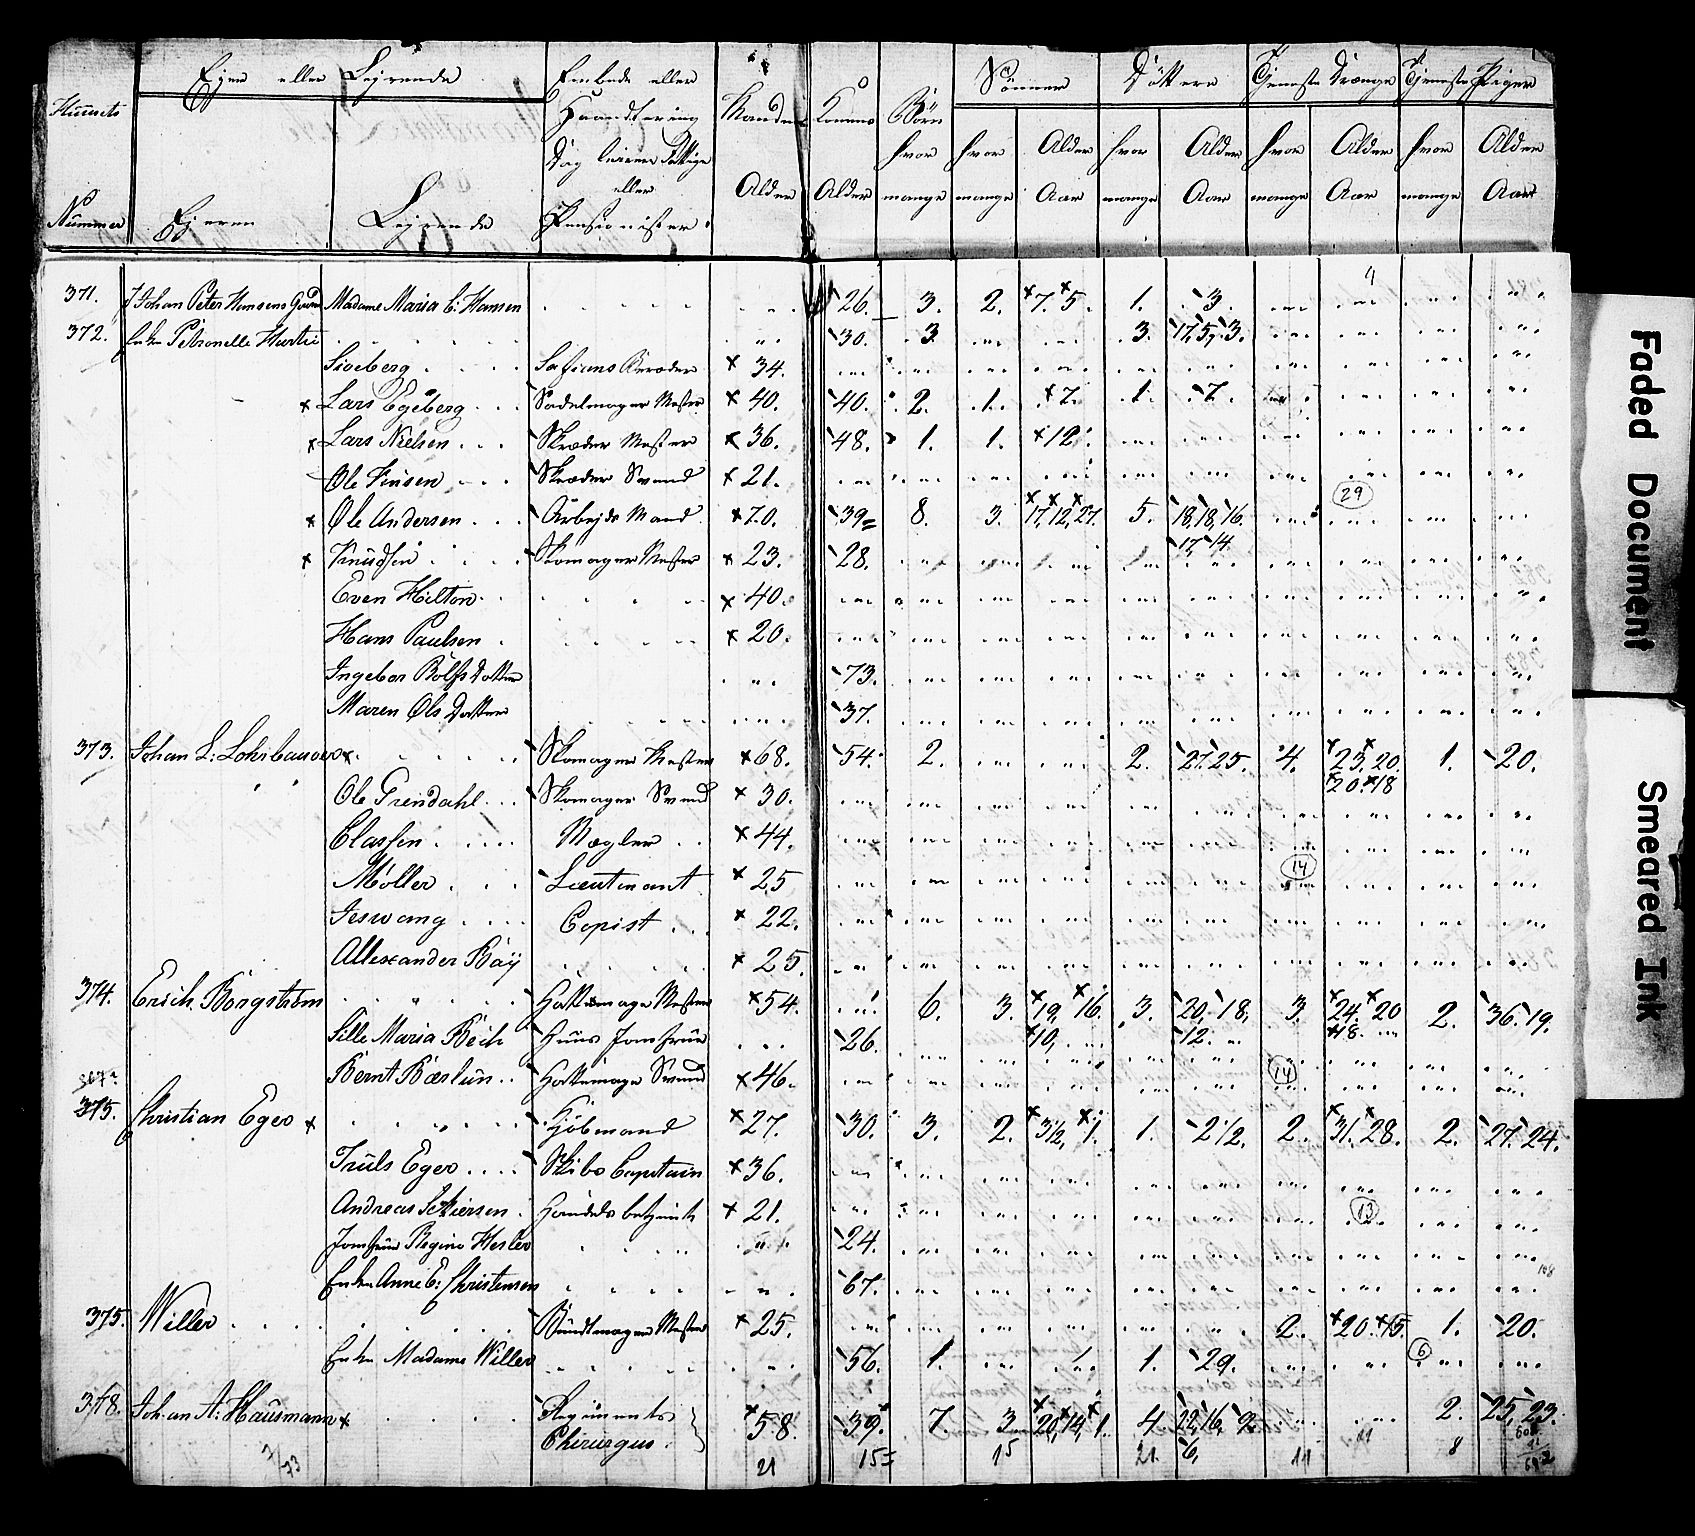 Huusets Nummer | Ejere eller Lejende | Embede eller Haandtering Dag leiere Fattige eller Pensionister | Manders Alder | Konens Alder | Børn hvor mange | Sönner | Döttere | Tjeneste Drænge | Tjeneste Piger
Ejeren | Lejende | hvor mange | Alder Aar | hvor mange | Alder Aar | hvor mange | Alder Aar | hvor mange | Alder Aar
4
371. Johan Peter Hansens Madame Maria C: Hansen 26. 3. 2. 7. 5. 1. 3.
372. Enke Petronelle 30. 3. 3. 17, 5, 3.
Sioeberg 34.
Lars Egeberg Sadelmager Mester 40. 40. 2. 1. 7. 1. 7.
Lars Nielsen Skræder Mester 36. 48. 1. 1. 12.
Ole Skræder Svend 21.
29
Ole Andersen Arbejds Mand 70. 39 8. 3. 17, 12, 27. 5. 18, 18, 16.
17, 14.
Knudsen Skomager Mester 23. 28.
Even Hilton 40.
Hans Paulsen 20.
Ingebor Rolfs Datter 73.
Maren Ols Datter 37.
373. Johan L: Lohrbauer Skomager Mester 68. 54. 2. 2. 27. 25. 4. 23, 20. 1. 20.
20. 18
Ole Grendahl Skomager Svend 30.
Classen Mægler 44.
14
Møller Lieutnant 25
Jeswang Copist 22.
Allexander Bäy 25.
374. Erich Borgström Hattemager Mester 54. 6. 3. 19, 16. 3. 20, 18, 3. 24. 20 2. 36. 19.
Sille Maria Bech Huus Jomfrue 26. 10, 12. 18.
Bernt Hattemager Svend 46. 14
375. Christian Eger Kiöbmand 27. 30. 3. 2. 3 1/2, 1. 1. 2 1/2. 2. 31. 28. 2. 27. 24.
Truls Eger Skibs Capitain 36.
Andreas Handels betjent 21. 13
Jomfrue Regine Hesler 24.
Enke Anne C: Christensen 67.
375. Willer Bundtmager Mester 25. 2. 20. 15. 1. 20.
Enke Madame Willer 56. 1. 1. 29. 6
378. Johan A: Hausmann Regiments Chirurgus 58. 39. 7. 3 20, 14, 1. 4. 22, 16, 9. 2. 25, 23.
6,
21 15 15 21. 11 11 8
Faded Document
Smeared Ink